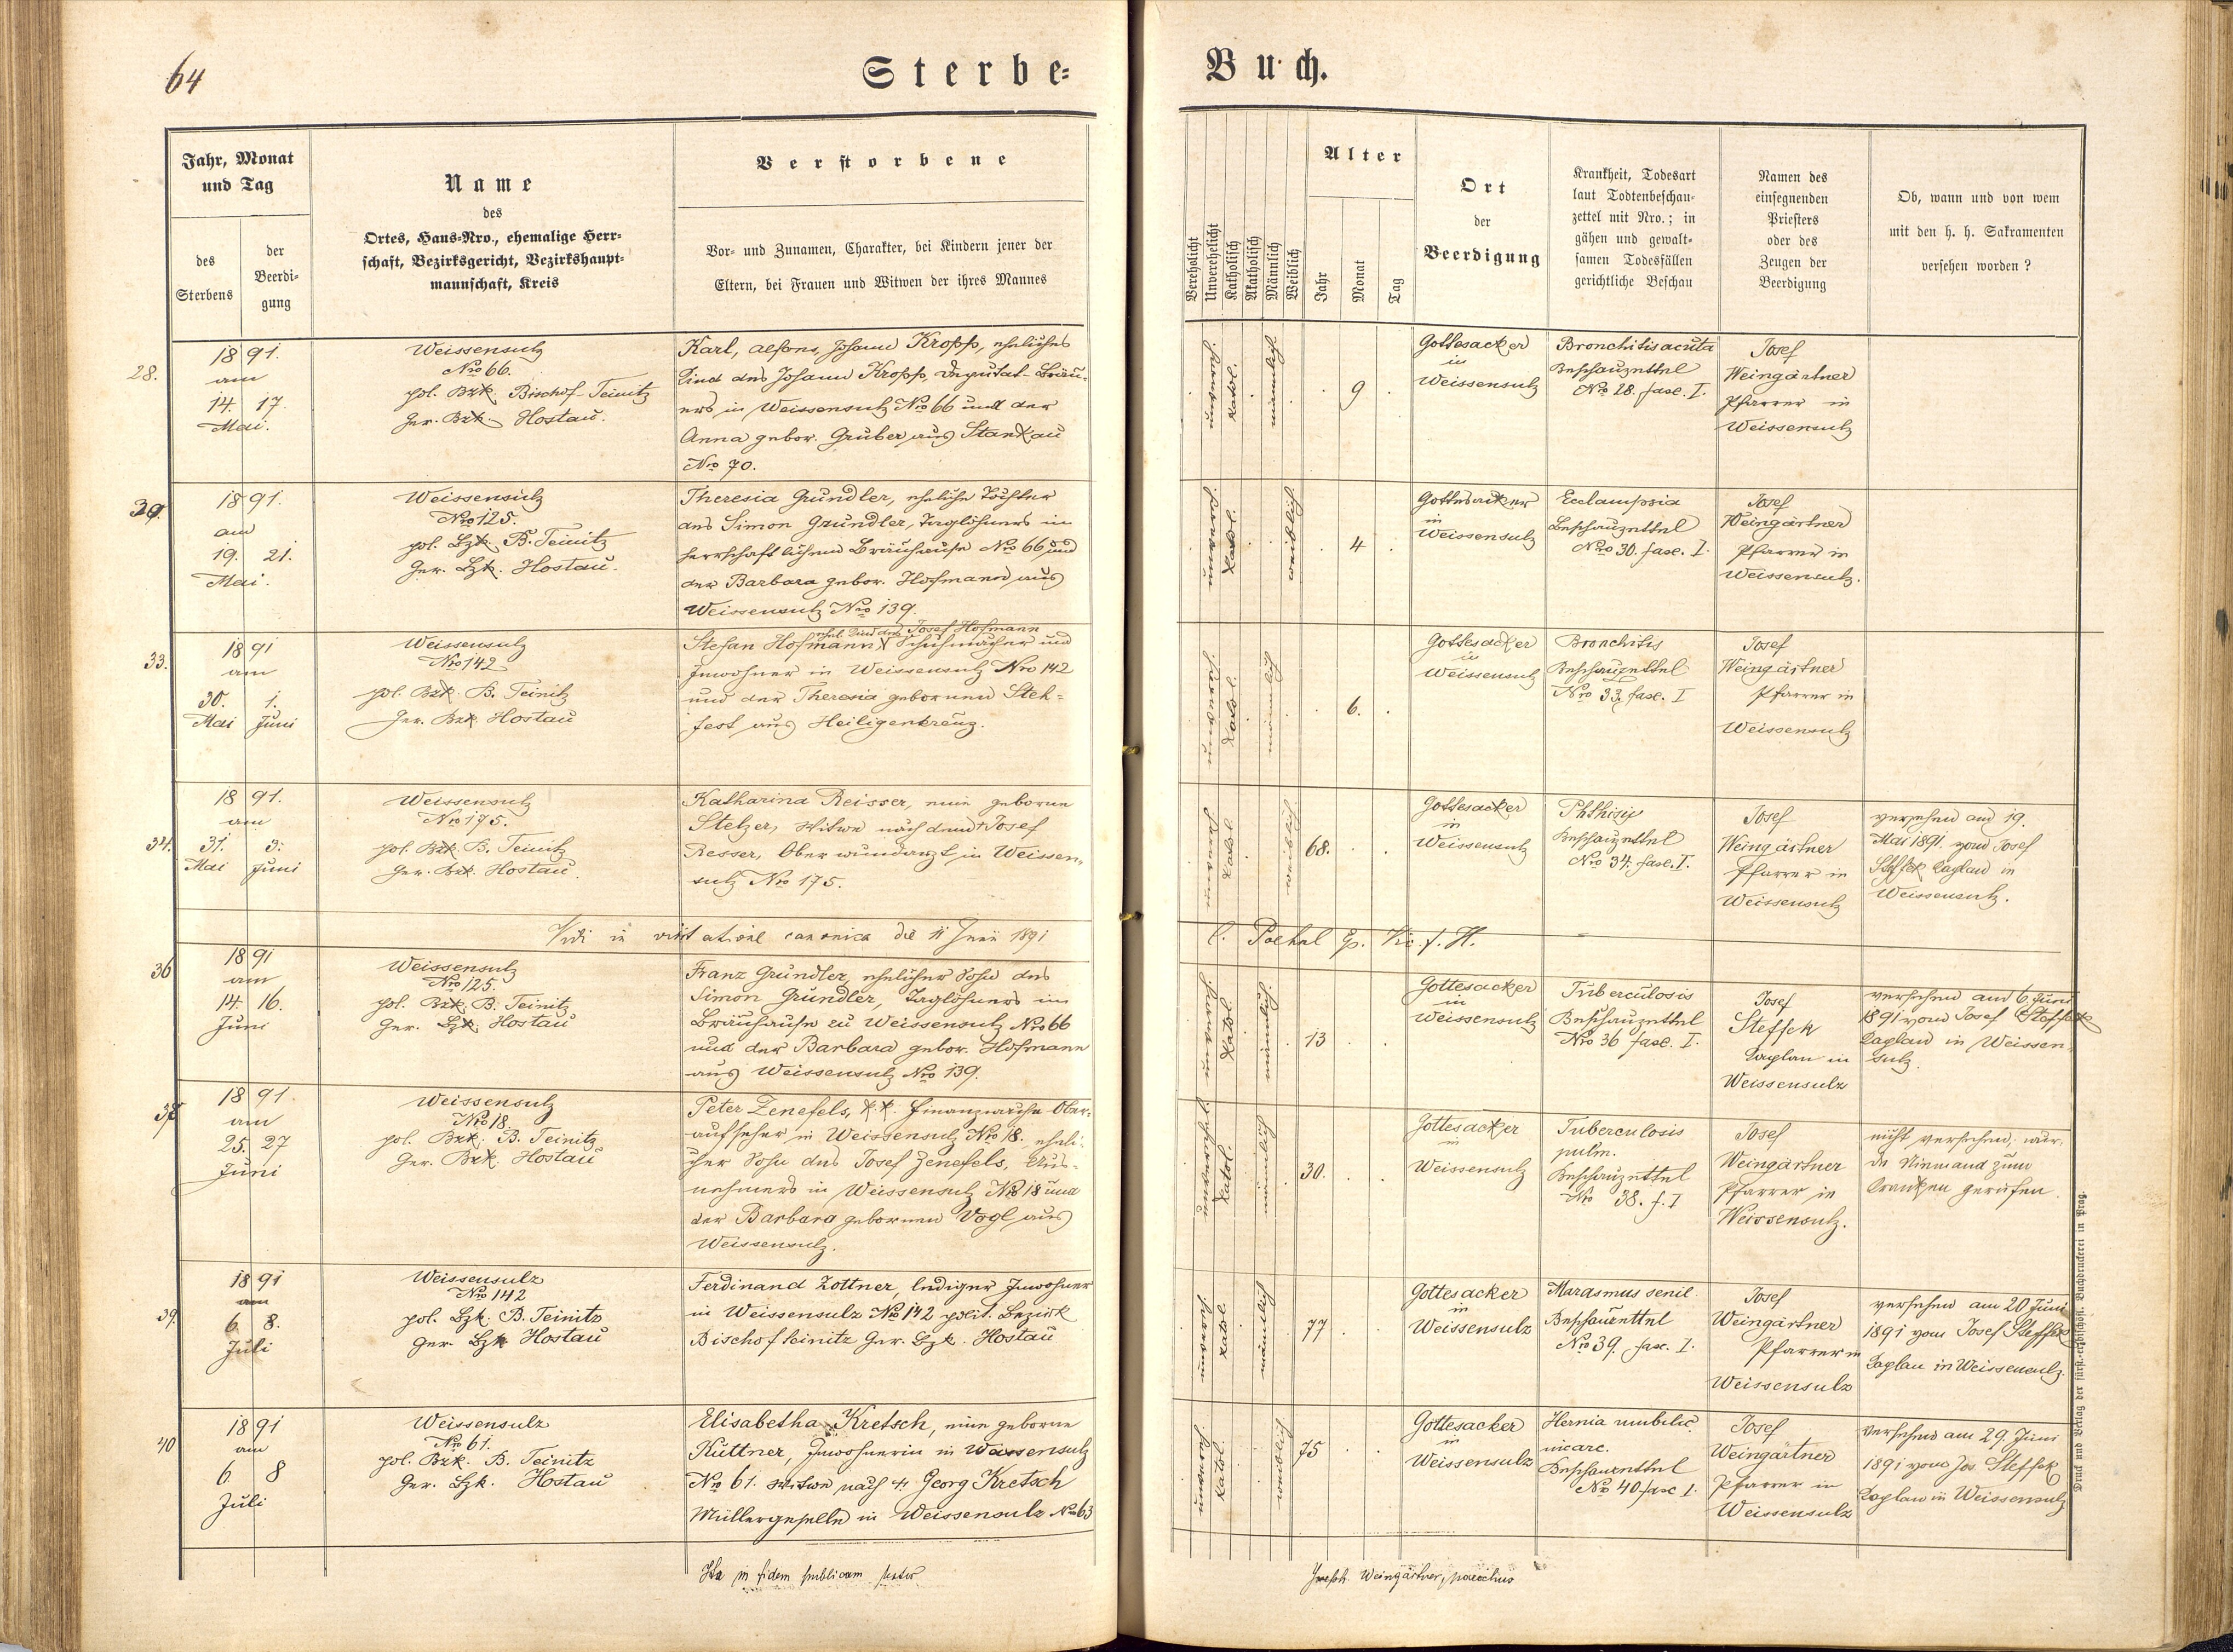 64
Sterbe=
Buch.
Jahr, Monat
und Tag
des
Sterbens
der
Beerdi-
gung
Name
des
Ortes, Haus-Nro., ehemalige Herr-
schaft, Bezirksgericht, Bezirkshaupt-
mannschaft, Kreis
Verstorbene
Vor- und Zunamen, Charakter, bei Kindern jener der
Eltern, bei Frauen und Witwen der ihres Mannes
Verehelicht
Unverehelicht
Katholisch
Akatholisch
Männlich
Weiblich
Alter
Jahr
Monat
Tag
Ort
der
Beerdigung
Krankheit, Todesart
laut Todtenbeschau-
zettel mit Nro.; in
gähen und gewalt-
samen Todesfällen
gerichtliche Beschau
Namen des
einsegnenden
Priesters
oder des
Zeugen der
Beerdigung
Ob, wann und von wem
mit den h. h. Sakramenten
versehen worden?
28.
1891.
am
14. 17.
Mai.
Weissensulz
Nro 66.
pol. Bzk. Bischof-Teinitz
Ger. Bzk. Hostau.
Karl, Alfons, Johann Kropf, eheliches
Kind des Johann Kropf, Deputat-Bräu-
ers in Weissensulz Nro 66 und der
Anna gebor. Gruber aus Stankau
Nro 70.
katol.
männlich
9
Gottesacker
in
Weissensulz
Bronchitis acuta
Beschauzettel
Nro 28. fasc. I.
Josef
Weingärtner
Pfarrer in
Weissensulz
1891.
am
19. 21.
Mai.
Weissensulz
Nro 125.
pol. Bzk. B. Teinitz
Ger. Bzk. Hostau.
Theresia Gründler, eheliche Tochter
des Simon Gründler, Taglöhners im
herrschaftlichen Bräuhause Nro 66 und
der Barbara gebor. Hofmann aus
Weissensulz Nro 139.
katol.
weiblich
4
Gottesacker
in
Weissensulz
Ecclampsia
Beschauzettel
Nro 30. fasc. I.
Josef
Weingärtner
Pfarrer in
Weissensulz.
33.
1891
am
30. 1.
Mai Juni
Weissensulz
Nro 142
pol. Bzk. B. Teinitz
Ger. Bzk. Hostau
ehel. Kind des Josef Hofmann
Stefan Hofmann, Schuhmacher und
Inwohner in Weissensulz Nro 142
und der Theresia gebornen Steh-
fest aus Heiligenkreuz.
katol.
männlich
6.
Gottesacker
in
Weissensulz
Bronchitis
Beschauzettel
Nro 33. fasc. I
Josef
Weingärtner
Pfarrer in
Weissensulz
34.
1891.
am
31. 3.
Mai Juni
Weissensulz
Nro 175.
pol. Bzk. B. Teinitz
Ger. Bzk. Hostau.
Katharina Reisser, eine geborne
Stelzer, Witwe nach dem † Josef
Resser, Oberwundarzt in Weissen-
sulz Nro 175.
katol.
weiblich
68.
Gottesacker
in
Weissensulz
Phthisis
Beschauzettel
Nro 34. fasc. I.
Josef
Weingärtner
Pfarrer in
Weissensulz
versehen am 19.
Mai 1891. vom Josef
Steffek Kaplan in
Weissensulz.
Vidi in visitatione canonica die 11 Junii 1891
36
1891
am
14. 16.
Juni
Weissensulz
Nro 125.
pol. Bzk. B. Teinitz
Ger. Bzk. Hostau
Franz Gründler, ehelicher Sohn des
Simon Gründler, Taglöhners im
Bräuhause zu Weissensulz Nro 66
und der Barbara gebor. Hofmann
aus Weissensulz Nro 139.
katol.
männlich
13
Gottesacker
in
Weissensulz
Tuberculosis
Beschauzettel
Nro 36 fasc. I.
Josef
Steffek
Kaplan in
Weissensulz
versehen am 6. Juni
1891 vom Josef Steffek
Kaplan in Weissen-
sulz.
1891.
am
25. 27
Juni
Weissensulz
Nro 18.
pol. Bzk. B. Teinitz
Ger. Bzk. Hostau
Peter Zenefels, k.k. Finanzwache Ober-
aufseher in Weissensulz Nro 18. eheli-
cher Sohn des Josef Zenefels, Aus-
nehmers in Weissensulz Nro 18 und
der Barbara gebornen Vogl aus
Weissensulz.
unverehel.
katol.
männlich
30.
Gottesacker
in
Weissensulz
Tuberculosis
pulm.
Beschauzettel
Nro 38. f. I
Josef
Weingärtner
Pfarrer in
Weissensulz.
nicht versehen; wur-
de Niemand zum
Kranken gerufen.
39.
1891
am
6. 8.
Juli
Weissensulz
Nro 142
pol. Bzk. B. Teinitz
Ger. Bzk Hostau
Ferdinand Zottner, lediger Inwohner
in Weissensulz Nro 142 polit. Bezirk
Bischofteinitz Ger. Bzk. Hostau
katol.
männlich
77
Gottesacker
in
Weissensulz
Marasmus senil.
Beschauzettel
Nro 39. fasc. I.
Josef
Weingärtner
Pfarrer in
Weissensulz
versehen am 20 Juni
1891 vom Josef Steffek
Kaplan in Weissensulz.
40
1891
am
6 8
Juli
Weissensulz
Nro 61.
pol. Bzk. B. Teinitz
Ger. Bzk. Hostau
Elisabetha Kretsch, eine geborne
Küttner, Inwohnerin in Weissensulz
Nro 61. Witwe nach † Georg Kretsch
Müllergeselle in Weissensulz Nro 63
katol.
weiblich
75
Gottesacker
in
Weissensulz
Hernia umbilic.
incarc.
Beschauzettel
Nro 40 fasc I.
Josef
Weingärtner
Pfarrer in
Weissensulz
versehen am 29. Juni
1891 vom Jos. Steffek
Kaplan in Weissensulz
Ita in fidem publicam testor
Joseph Weingärtner, parochus
Druck und Verlag der fürst.-erzbischöfl. Buchdruckerei in Prag.